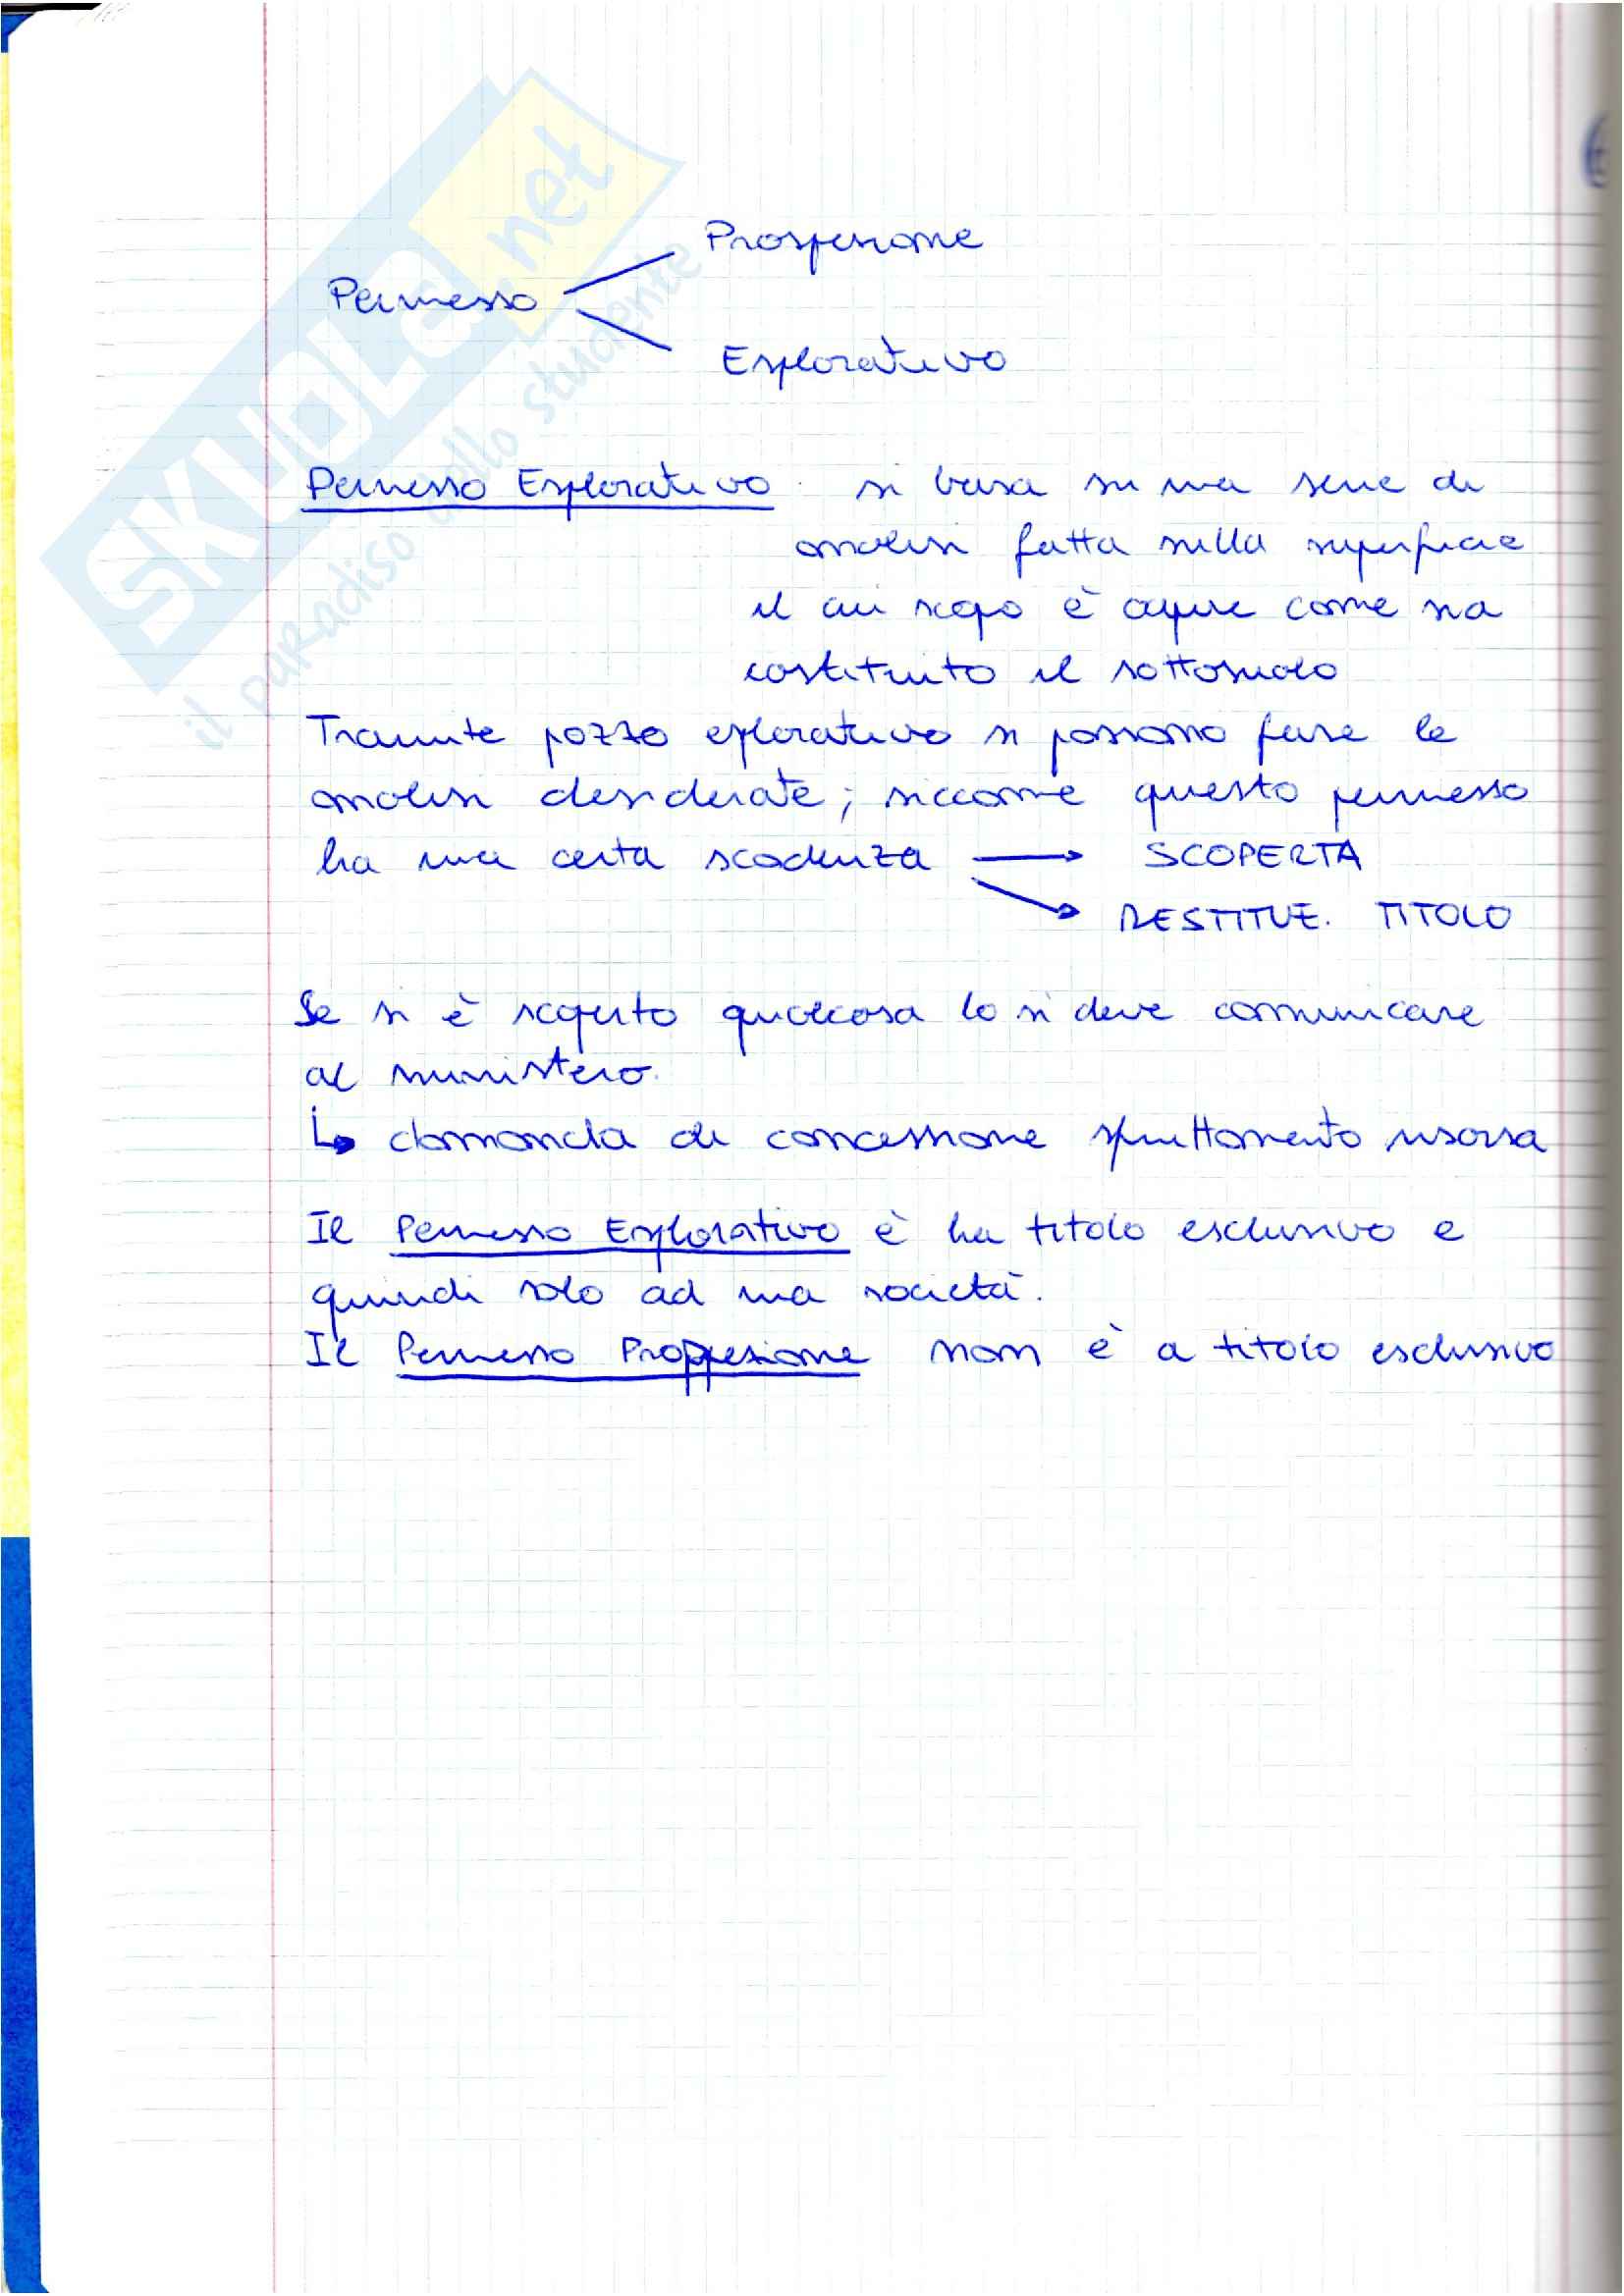 SKUOLa.net
il paradiso dello studente
Prospezione
Permesso
Esplorativo
Permesso Esplorativo : si basa su una serie di
analisi fatta sulla superficie
il cui scopo è capire come sia
costituito il sottosuolo
Tramite pozzo esplorativo si possono fare le
analisi desiderate; siccome questo permesso
ha una certa scadenza → SCOPERTA
→ RESTITUE. TITOLO
Se si è scoperto qualcosa lo si deve comunicare
al ministero.
↳ domanda di concessione sfruttamento risorsa
Il Permesso Esplorativo è ha titolo esclusivo e
quindi solo ad una società.
Il Permesso Prospezione non è a titolo esclusivo